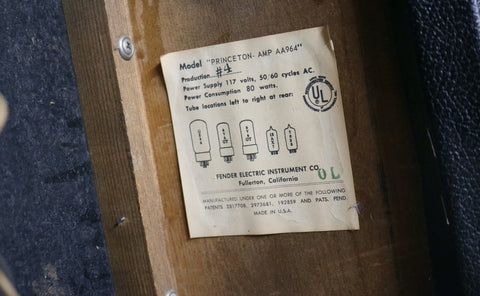 Model "PRINCETON-AMP AA964"
Production #4
Power Supply 117 volts, 50/60 cycles AC.
Power Consumption 80 watts.
Tube locations left to right at rear:
UL
FENDER ELECTRIC INSTRUMENT CO.
Fullerton, California
OL
MANUFACTURED UNDER ONE OR MORE OF THE FOLLOWING
PATENTS 2817708, 2973681, 192859 AND PATS. PEND.
MADE IN U.S.A.